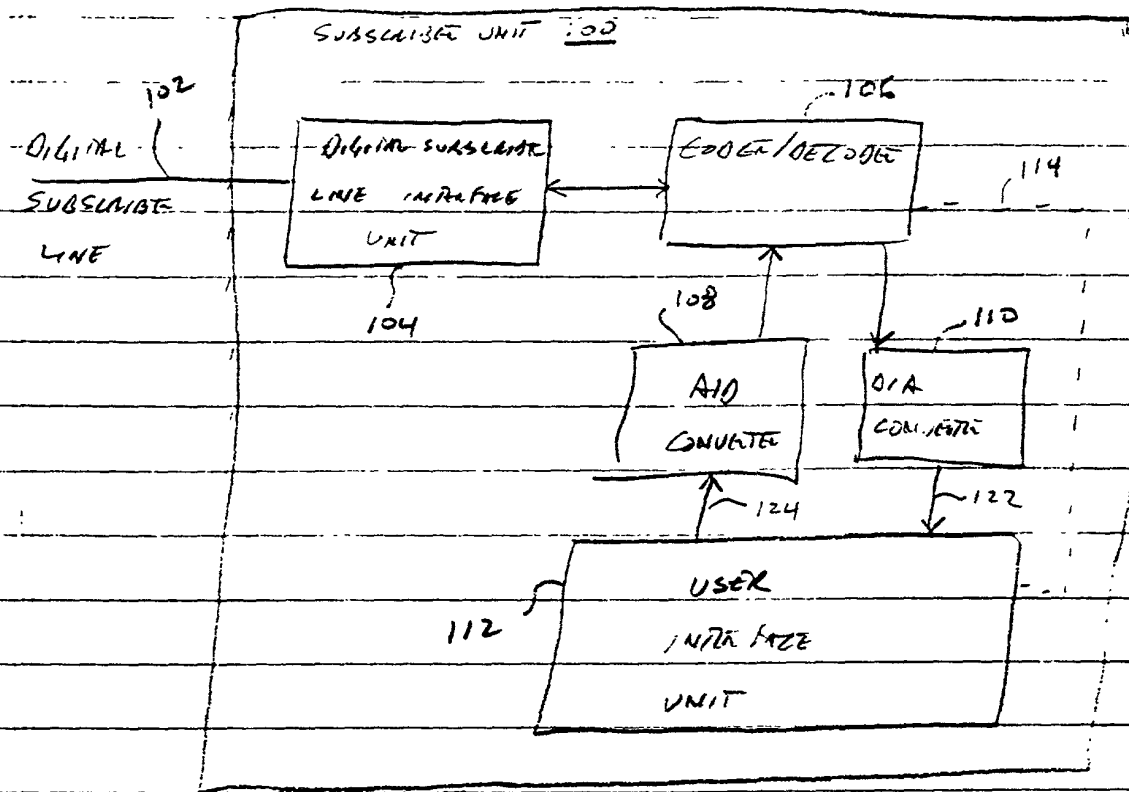 SUBSCRIBER UNIT 100
102
106
DIGITAL
SUBSCRIBE
LINE
DIGITAL SUBSCRIBE
LINE INTERFACE
UNIT
CODER/DECODER
114
104
108
110
A/D
CONVERTER
D/A
CONVERTER
124
122
112
USER
INTERFACE
UNIT